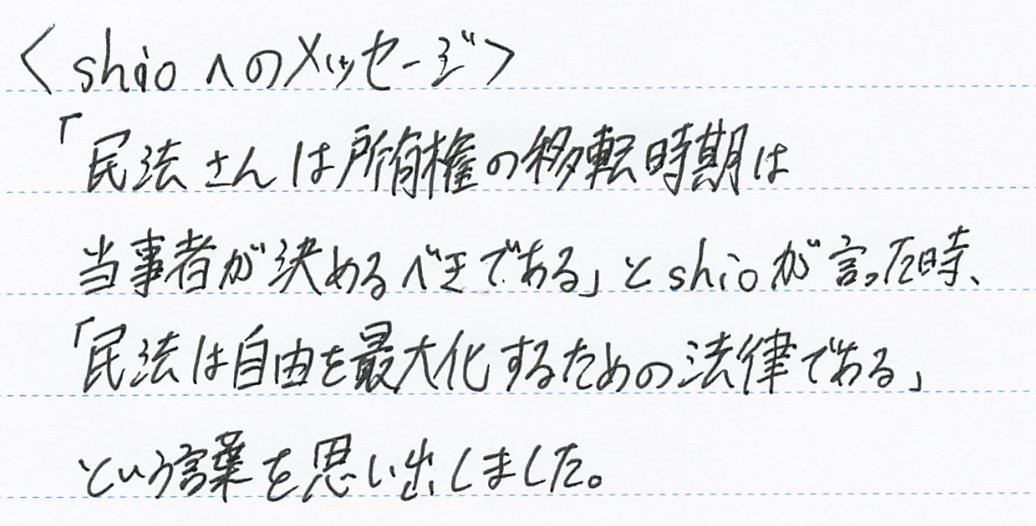 <shioへのメッセージ>
「民法さんは所有権の移転時期は
当事者が決めるべきである」とshioが言った時、
「民法は自由を最大化するための法律である」
という言葉を思い出しました。